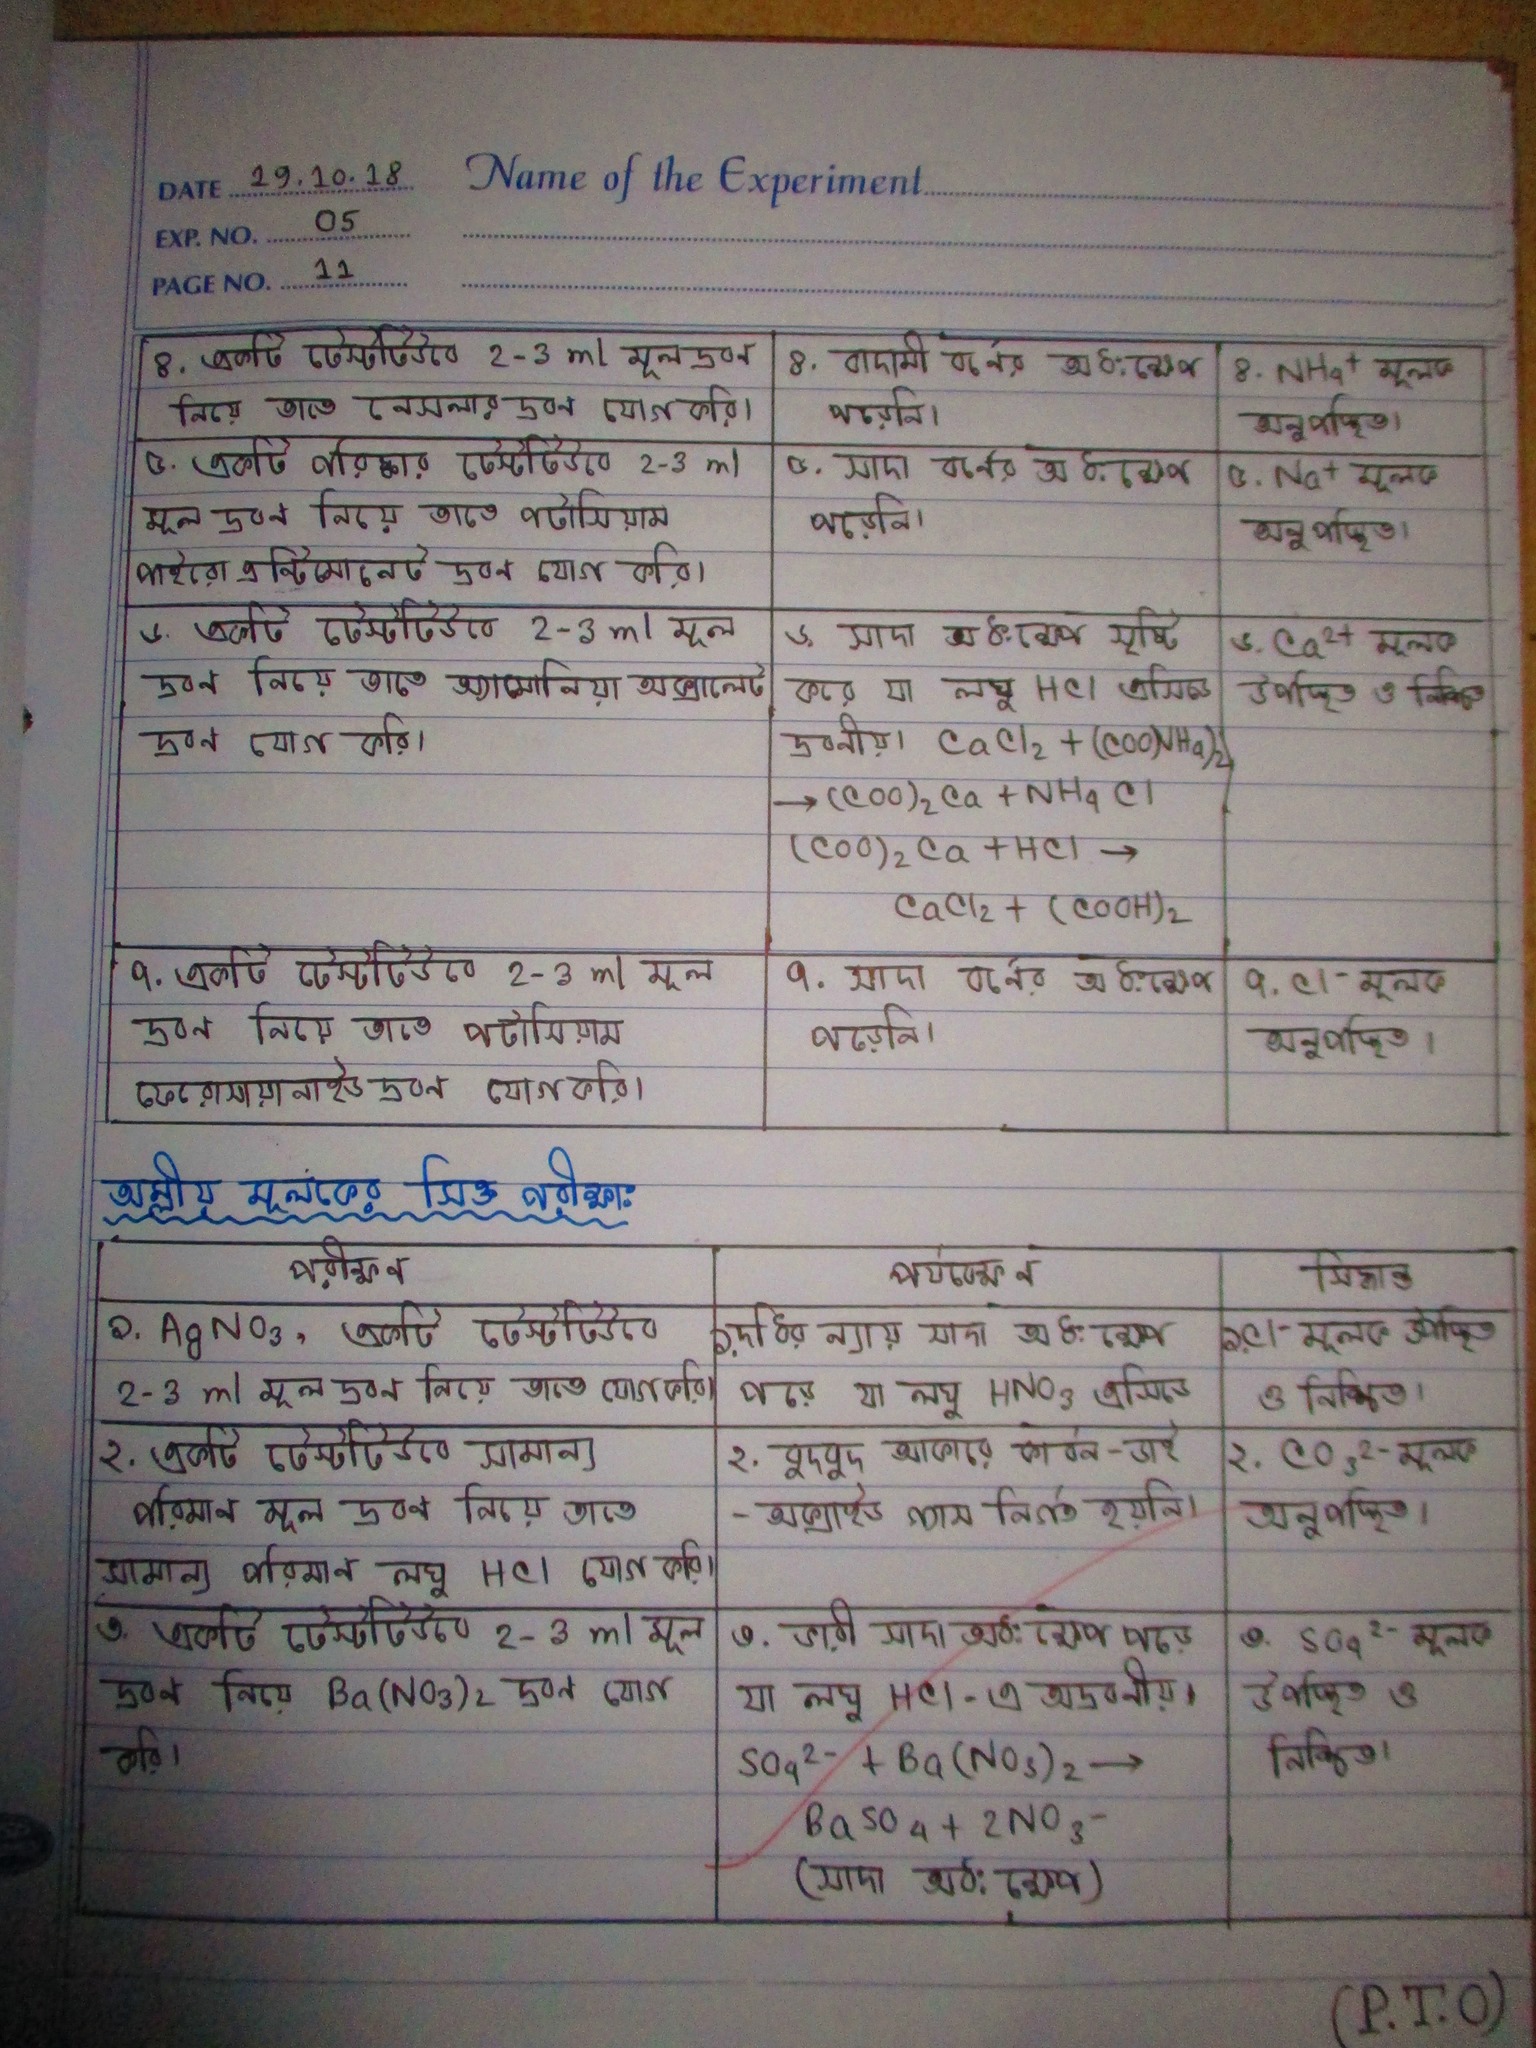 DATE 19.10.18 Name of the Experiment
EXP. NO. 05
PAGE NO. 11
৪. একটি টেস্টটিউবে 2-3 ml মূল দ্রবন
নিয়ে তাতে নেসলার দ্রবন যোগ করি।
৪. বাদামী বর্নের অধঃক্ষেপ
পড়েনি।
৪. NH4+ মূলক
অনুপস্থিত।
৫. একটি পরিষ্কার টেস্টটিউবে 2-3 ml
মূল দ্রবন নিয়ে তাতে পটাসিয়াম
পাইরো এন্টিমোনেট দ্রবন যোগ করি।
৫. সাদা বর্নের অধঃক্ষেপ
পড়েনি।
৫. Na+ মূলক
অনুপস্থিত।
৬. একটি টেস্টটিউবে 2-3 ml মূল
দ্রবন নিয়ে তাতে অ্যামোনিয়া অক্সালেট
দ্রবন যোগ করি।
৬. সাদা অধঃক্ষেপ সৃষ্টি
করে যা লঘু HCl এসিডে
দ্রবনীয়। CaCl2 + (COONH4)2
→ (COO)2Ca + NH4Cl
(COO)2Ca + HCl →
CaCl2 + (COOH)2
৬. Ca2+ মূলক
উপস্থিত ও নিশ্চিত
৭. একটি টেস্টটিউবে 2-3 ml মূল
দ্রবন নিয়ে তাতে পটাসিয়াম
ফেরোসায়ানাইড দ্রবন যোগ করি।
৭. সাদা বর্নের অধঃক্ষেপ
পড়েনি।
৭. Cl- মূলক
অনুপস্থিত।
অম্লীয় মূলকের সিক্ত পরীক্ষাঃ
পরীক্ষন পর্যবেক্ষন সিদ্ধান্ত
১. AgNO3, একটি টেস্টটিউবে
2-3 ml মূল দ্রবন নিয়ে তাতে যোগ করি।
১. দধির ন্যায় সাদা অধঃক্ষেপ
পরে যা লঘু HNO3 এসিডে
১. Cl- মূলক উপস্থিত
ও নিশ্চিত।
২. একটি টেস্টটিউবে সামান্য
পরিমান মূল দ্রবন নিয়ে তাতে
সামান্য পরিমান লঘু HCl যোগ করি।
২. বুদবুদ আকারে কার্বন-ডাই
-অক্সাইড গ্যাস নির্গত হয়নি।
২. CO3 2- মূলক
অনুপস্থিত।
৩. একটি টেস্টটিউবে 2-3 ml মূল
দ্রবন নিয়ে Ba(NO3)2 দ্রবন যোগ
করি।
৩. ভারী সাদা অধঃক্ষেপ পড়ে
যা লঘু HCl-এ অদ্রবনীয়।
SO4 2- + Ba(NO3)2 →
BaSO4 + 2NO3-
(সাদা অধঃক্ষেপ)
৩. SO4 2- মূলক
উপস্থিত ও
নিশ্চিত।
(P.T.O)